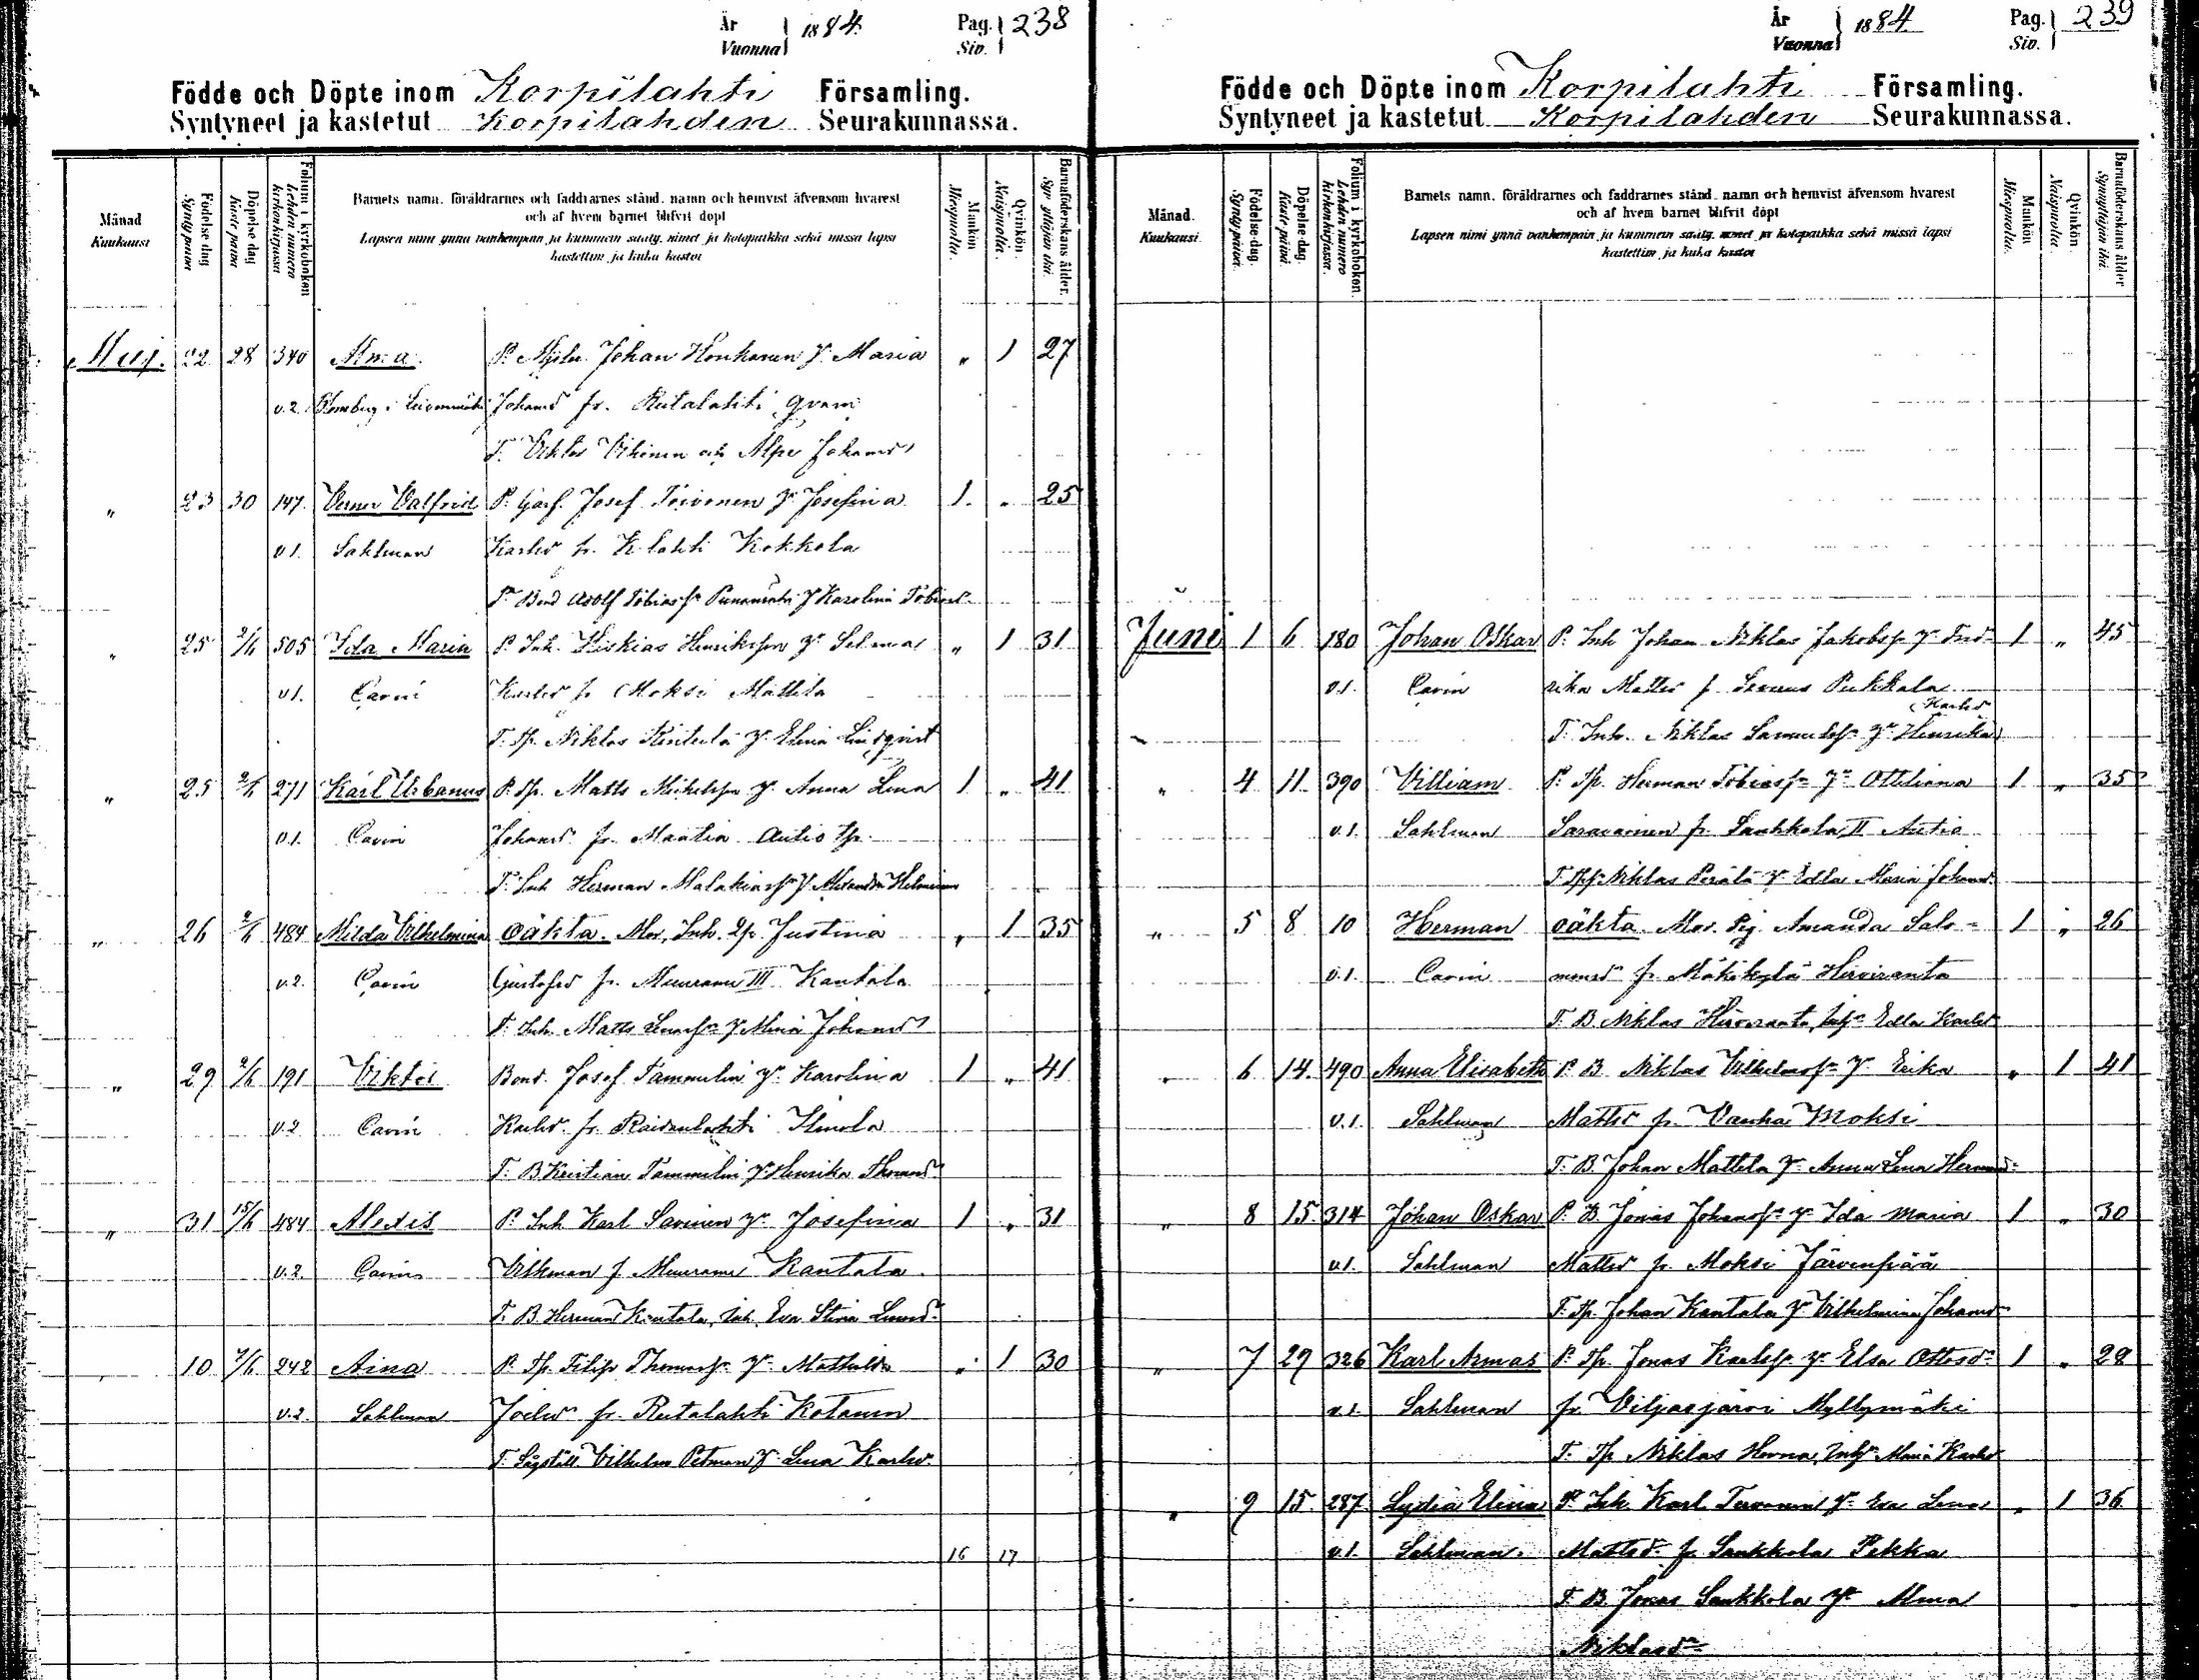 År Vuonna 1884. Pag. Siv. 238
Födde och Döpte inom Korpilahti Församling.
Syntyneet ja kastetut Korpilahden Seurakunnassa.
Månad Kuukausi
Födelse dag Synty päivä
Döpelse dag Kaste päivä
Folium i kyrkoboken Lehden numero kirkonkirjassa
Barnets namn, föräldrarnes och faddrarnes stånd, namn och hemvist äfvensom hvarest
och af hvem barnet blifvit döpt
Lapsen nimi ynnä vanhempain ja kummein sääty, nimet ja kotopaikka sekä missä lapsi
kastettiin ja kuka kastoi
Mankön Miespuolia.
Qvinkön. Naispuolia.
Barnaföderskans ålder. Synnyttäjän ikä.
Maj. 22 28 340 Alma. P. Johan Honkanen H. Maria " 1 27
v.2. i Leivonmäki Johansd fr. Rutalahti
F. Viktor och Johansd
" 23 30 147. Verner Valfrid P. Josef Toivonen H. Josefina 1. " 25
v1. Sahlman Karlsd fr. K.lahti Kokkola
F. Bond Adolf Tobiass. Karolina Tobiasd.
" 25 2/6 505 Ida Maria P. Inh. Hiskias Henriksson H. Selma " 1 31
v1. Carin Karlsd fr Moksi Mattila
F. Tp. Niklas H. Elina Lindqvist
" 25 2/6 271 Karl Urbanus P. Tp. Matts Mickelsson H. Anna Lena 1 " 41
v1. Carin Johansd fr. Maatia Autio tp.
F. Inh Herman Malakias H. Alexandra
" 26 2/6 484 Milda Vilhelmina oäkta. Mor, Inh. Justina " 1 35
v.2. Carin Gustafsd fr. Muurame III Kantala
F. Inh. Matts H. Johansd
" 29 2/6 191 Viktor Bond. Josef Tammelin H. Karolina 1 " 41
v.2 Carin Karlsd. fr. Raidanlahti Ilmola
F. B Kristian Tammelin H. Henrika Thomasd.
" 31 15/6 484 Alexis P. Inh Karl Savinen H. Josefina 1 " 31
v.2. Carin Vilkman f Muurame Kantala
F. B. Herman Kantala, Inh. Eva Stina
" 10 7/6 242 Aina P. Tp. Filip Thomass. H. Mathilda " 1 30
v.2. Sahlman Joelsd fr. Rutalahti Kotanen
F. Vilhelm Petman H. Lena Karlsd.
16 17
År Vuonna 1884. Pag. Siv. 239
Födde och Döpte inom Korpilahti Församling.
Syntyneet ja kastetut Korpilahden Seurakunnassa.
Månad. Kuukausi.
Födelse-dag. Synty päivä.
Döpelse-dag. Kaste päivä.
Folium i kyrkoboken. Lehden numero kirkonkirjassa.
Barnets namn, föräldrarnes och faddrarnes stånd, namn och hemvist äfvensom hvarest
och af hvem barnet blifvit döpt
Lapsen nimi ynnä vanhempain ja kummein sääty, nimet ja kotopaikka sekä missä lapsi
kastettiin ja kuka kastoi
Mankön Miespuolia.
Qvinkön. Naispuolia.
Barnaföderskans ålder Synnyttäjän ikä.
Juni 1 6 180 Johan Oskar P. Inh Johan Niklas Jakobss. H. Fred- 1 " 45
v.1. Carin rika Mattsd f. Pukkala
Karlsd
F. Inh. Niklas Samuelss. H. Henrika
" 4 11 390 Villiam P. Tp. Herman Tobiass. H. Ottiliana 1 " 35
v.1. Sahlman Saravainen fr. Saukkola II Autio
F. Tp. Niklas Perälä H. Edla Maria Johansd.
" 5 8 10 Herman oäkta. Mor. Pig. Amanda Salo- 1 " 26
v.1. Carin monsd fr. Mäkikylä Hirviranta
F. B. Niklas Hirviranta, Edla Karlsd
" 6 14 490 Anna Elisabeth P. B. Niklas Vilhelmss. H. Erika " 1 41
v.1. Sahlman Mattsd fr. Vanha Moksi
F. B. Johan Mattila H. Anna Lena Hermansd.
" 8 15 314 Johan Oskar P. B. Jonas Johanss. H. Ida Maria 1 " 30
v.1. Sahlman Mattsd fr. Moksi Järvenpää
F. Tp. Johan Kantala H. Vilhelmina Johansd
" 7 29 326 Karl Armas P. Tp. Jonas Karlss. H. Elsa Ottosd. 1 " 28
v.1. Sahlman fr. Viljasjärvi Myllymäki
F. Tp Niklas Herna, Maria Karlsd
" 9 15 287 Lydia Elina P. Inh. Karl Tarvainen H. Eva Lena " 1 36
v.1. Sahlman. Mattsd. fr. Saukkola Pekka
F. B. Jonas Saukkola H. Alma
Niklasd